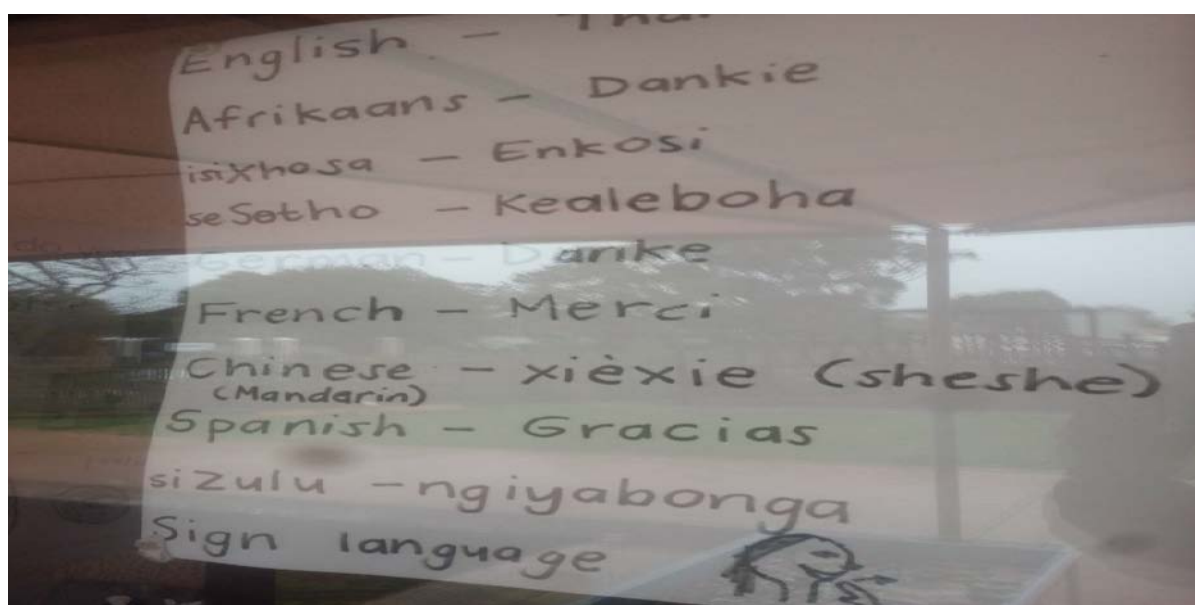 English -
Afrikaans - Dankie
isiXhosa - Enkosi
seSotho - Kealeboha
German - Danke
French - Merci
Chinese - xièxie (sheshe)
(Mandarin)
Spanish - Gracias
siZulu - ngiyabonga
Sign language